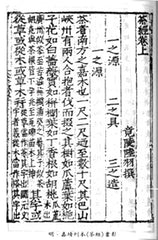 茶經卷上
竟陵陸羽撰
一之源 二之具 三之造
一之源
茶者南方之嘉木也一尺二尺迺至數十尺其巴山
峽州有兩人合抱者伐而掇之其樹如瓜蘆葉如梔
子花如白薔薇實如栟櫚 如丁香根如胡桃
從草或從木或草木并
明·嘉靖刊本《茶經》書影